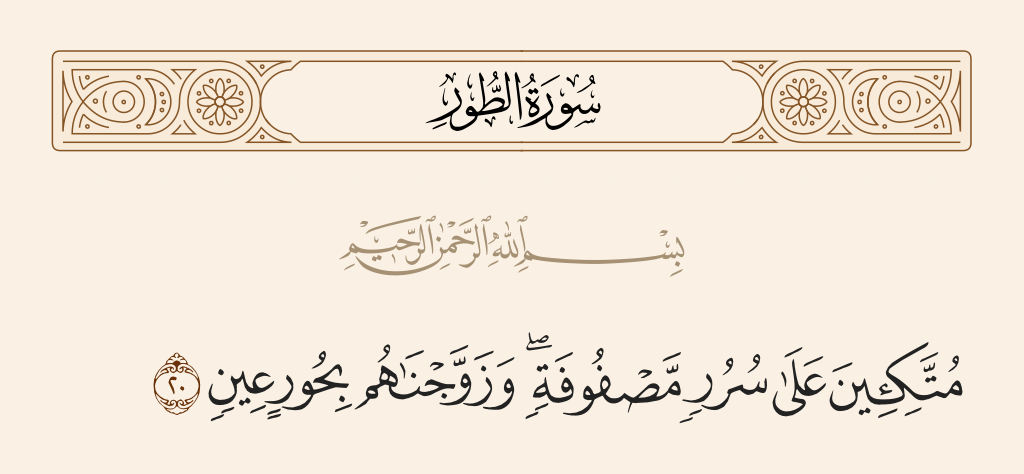 سُورَةُ الطُّورِ
بِسْمِ ٱللَّهِ ٱلرَّحْمَٰنِ ٱلرَّحِيمِ
مُتَّكِـِٔينَ عَلَىٰ سُرُرٍ مَّصْفُوفَةٍ ۖ وَزَوَّجْنَٰهُم بِحُورٍ عِينٍ ٢٠